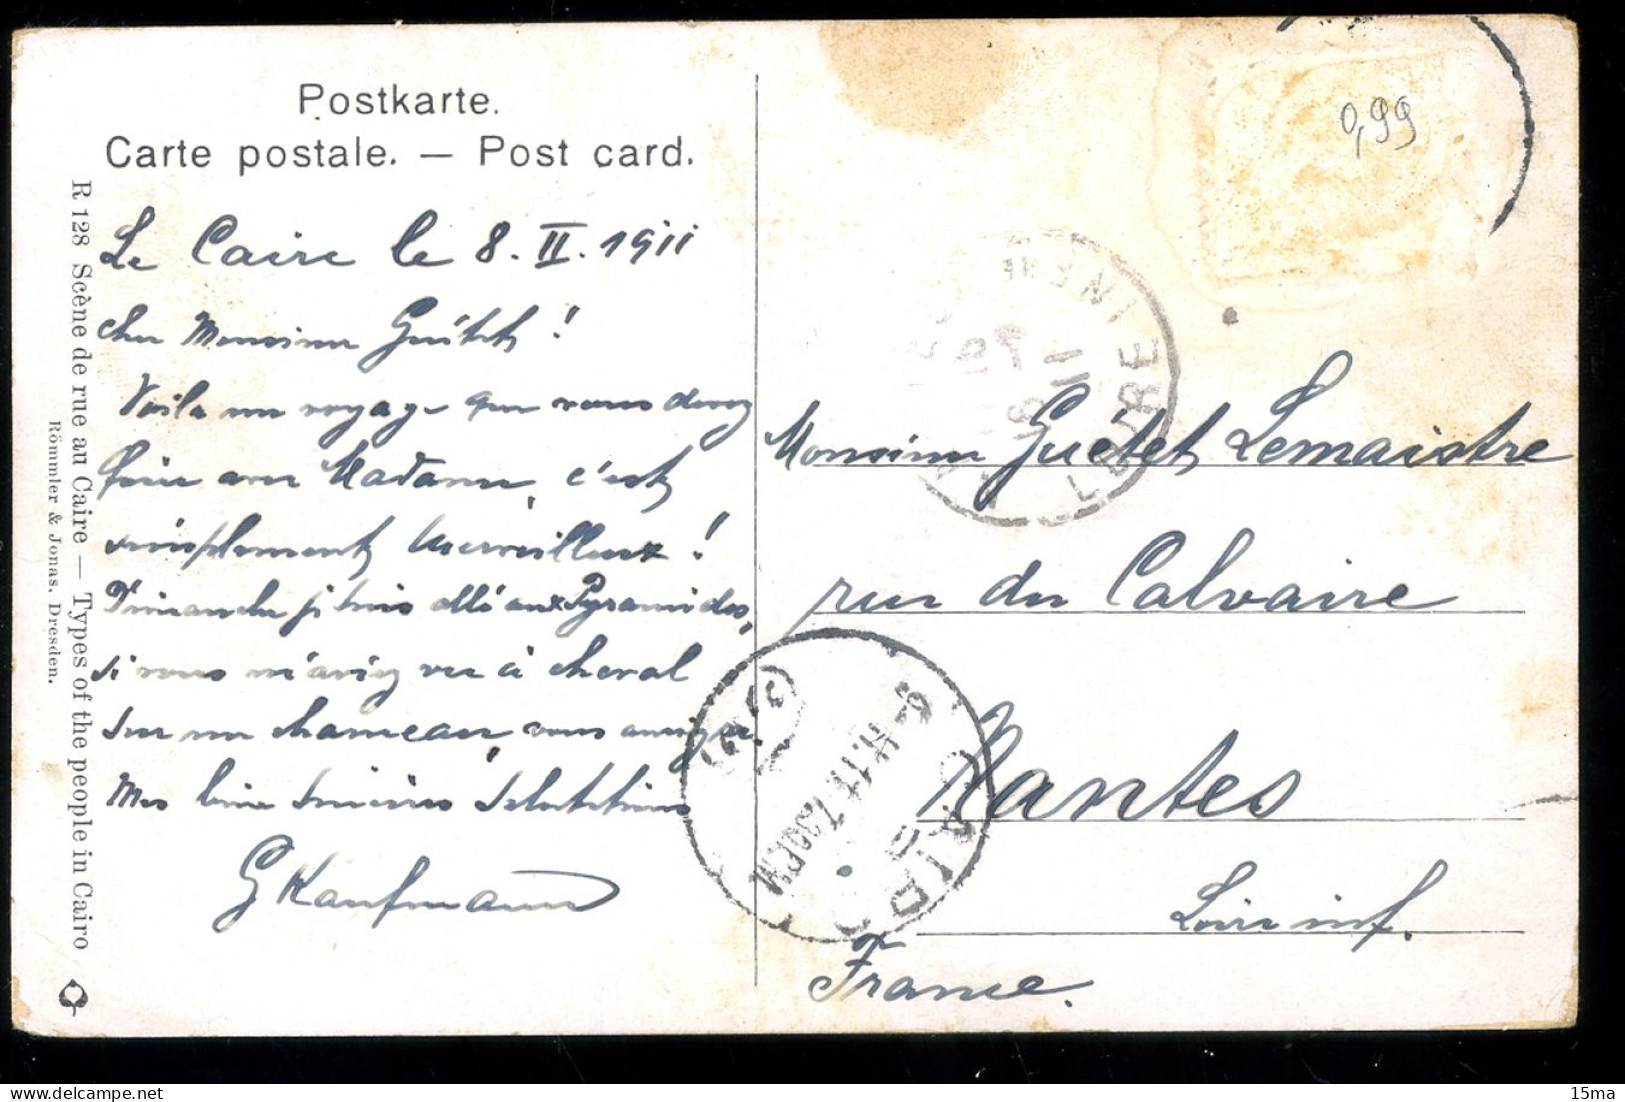 Postkarte.
Carte postale. — Post card.
R 128 Scène de rue au Caire — Types of the people in Cairo
Römmler & Jonas. Dresden.
Le Caire le 8. II. 1911
cher Monsieur Guétet !
Voila un voyage que vous devez
faire avec Madame, c'est
simplement merveilleux !
Dimanche je suis allé aux Pyramides,
si vous m'aviez vu à cheval
sur un chameau, vous auriez ri
Mes bien sincères Salutations
G Kaufmann
0,99
Monsieur Guétet Lemaistre
rue du Calvaire
Nantes
Loire inf.
France.
CAIRO
9 II.11 7.30PM
LOIRE INF
15ma